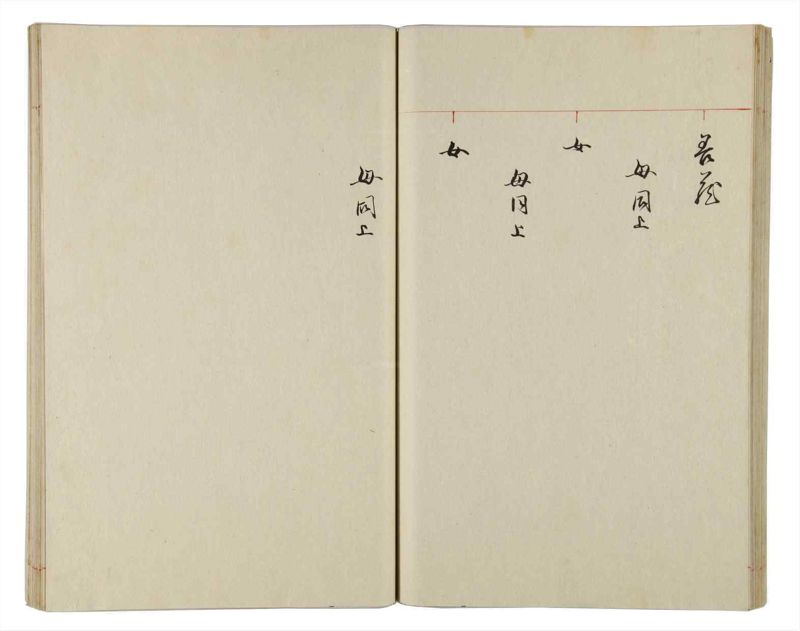 吾蔵
母同上
女
母同上
女
母同上